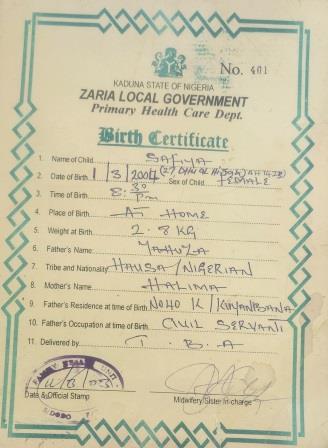 No. 401
KADUNA STATE OF NIGERIA
ZARIA LOCAL GOVERNMENT
Primary Health Care Dept.
Birth Certificate
1. Name of Child SAFIYA
2. Date of Birth 1/3/2004 Sex of Child FEMALE
3. Time of Birth 8:30 Pm
4. Place of Birth AT HOME
5. Weight at Birth 2.8 KG
6. Father's Name YAHUZA
7. Tribe and Nationality HAUSA/NIGERIAN
8. Mother's Name HALIMA
9. Father's Residence at time of Birth K/KUYANBANA
10. Father's Occupation at time of Birth CIVIL SERVANT
11. Delivered by T.B.A
Date & Official Stamp
Midwifery/Sister In-charge